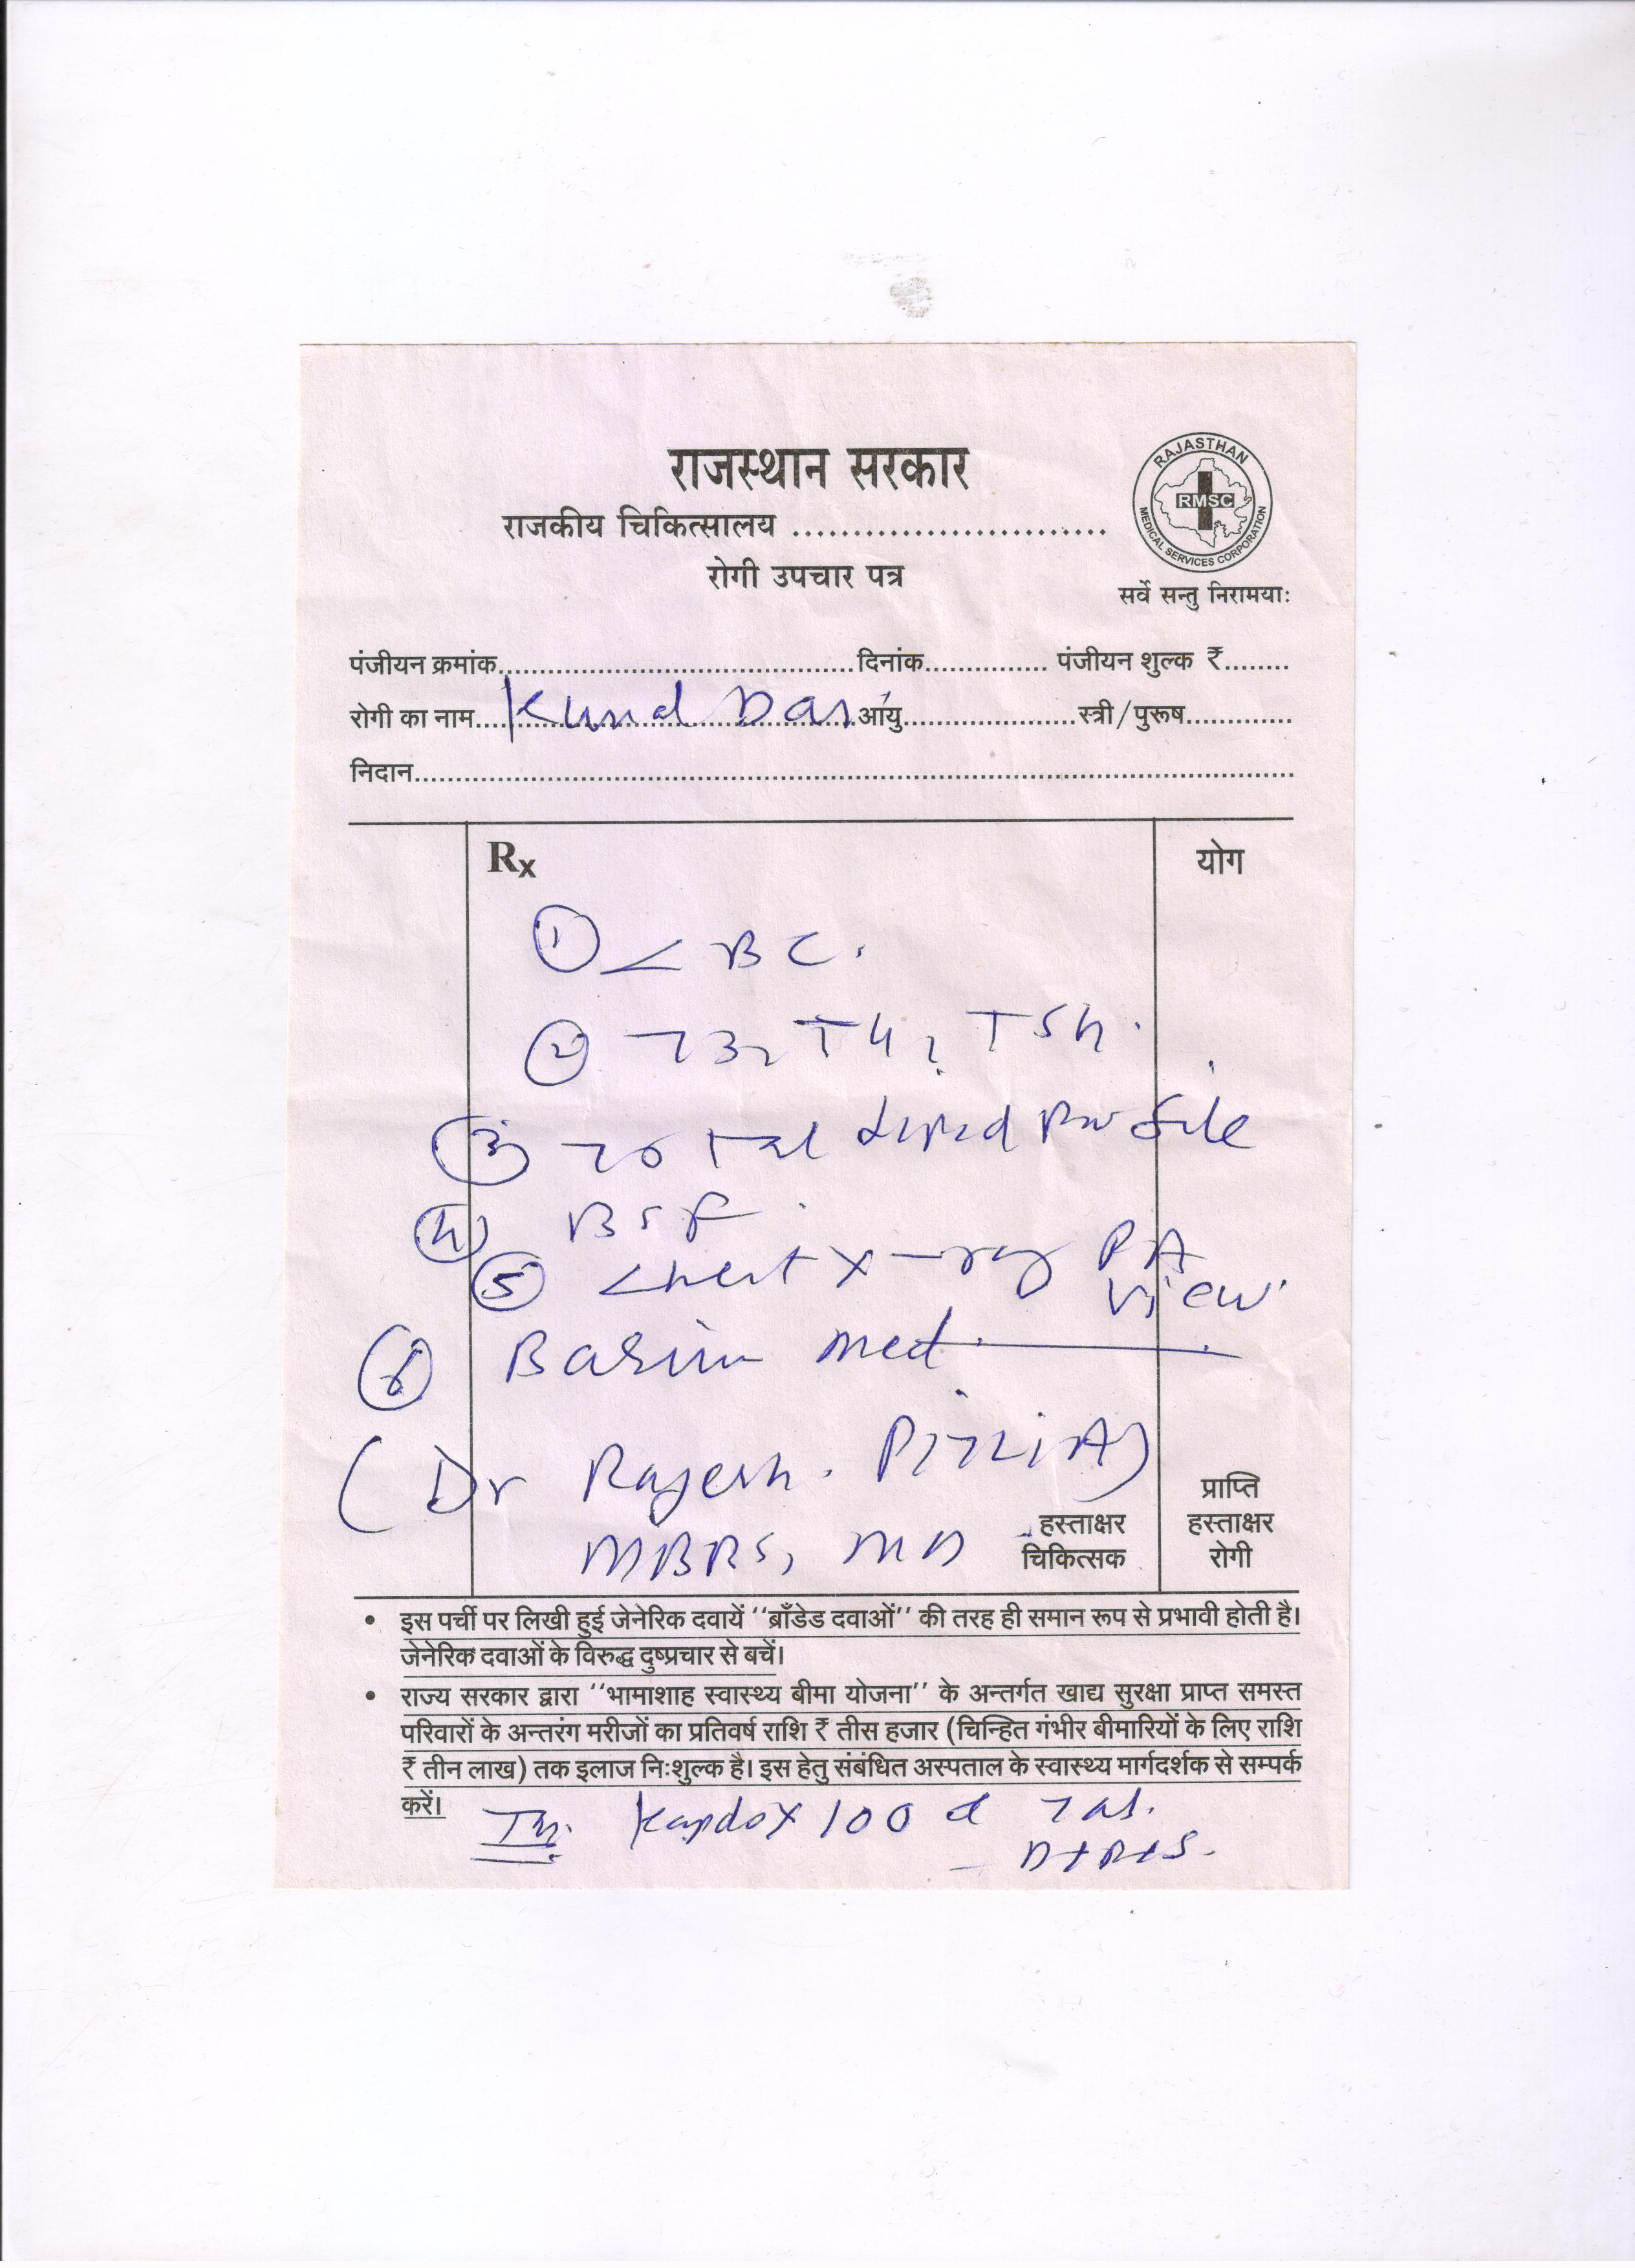 राजस्थान सरकार
राजकीय चिकित्सालय ..........................
रोगी उपचार पत्र
RAJASTHAN
RMSC
MEDICAL SERVICES CORPORATION
सर्वे सन्तु निरामयाः
पंजीयन क्रमांक............................................दिनांक............... पंजीयन शुल्क ₹........
रोगी का नाम.... Kund Das आयु.....................स्त्री/पुरूष.............
निदान............................................................................................................
Rx योग
① CBC.
② T3, T4, TSH.
③ Total Lipid Profile
④ BSF.
⑤ Chest X-ray PA
View.
⑥ Barium med
(Dr Rajesh.
MBBS, MD
हस्ताक्षर
चिकित्सक
प्राप्ति
हस्ताक्षर
रोगी
• इस पर्ची पर लिखी हुई जेनेरिक दवायें ‘‘ब्राँडेड दवाओं’’ की तरह ही समान रूप से प्रभावी होती है।
जेनेरिक दवाओं के विरुद्ध दुष्प्रचार से बचें।
• राज्य सरकार द्वारा ‘‘भामाशाह स्वास्थ्य बीमा योजना’’ के अन्तर्गत खाद्य सुरक्षा प्राप्त समस्त
परिवारों के अन्तरंग मरीजों का प्रतिवर्ष राशि ₹ तीस हजार (चिन्हित गंभीर बीमारियों के लिए राशि
₹ तीन लाख) तक इलाज निःशुल्क है। इस हेतु संबंधित अस्पताल के स्वास्थ्य मार्गदर्शक से सम्पर्क
करें।
100